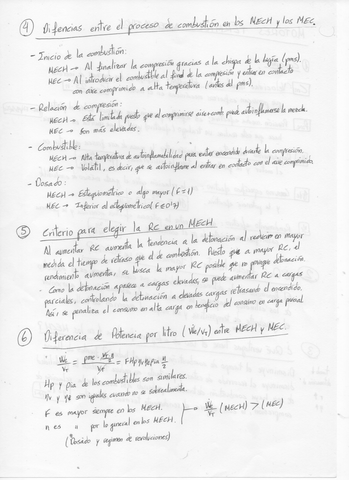 ④ Difencias entre el proceso de combustión en los MECH y los MEC.
- Inicio de la combustión:
MECH → Al finalizar la compresión gracias a la chispa de la bujía (pms).
MEC → Al introducir el combustible al final de la compresión y entrar en contacto
con aire comprimido a alta temperatura (antes del pms).
- Relación de compresión:
MECH → Está limitada puesto que al comprimirse puede autoinflamarse la mezcla.
MEC → Son más elevadas.
- Combustible:
MECH → Alta temperatura de autoinflamabilidad para evitar encendido durante la compresión.
MEC → Volátil, es decir, que se autoinflame al entrar en contacto con el aire comprimido.
- Dosado:
MECH → Estequiométrico o algo mayor (F=1)
MEC → Inferior al estequiométrico
⑤ Criterio para elegir la RC en un MECH.
Al aumentar RC aumenta la tendencia a la detonación al reducir en mayor
medida el tiempo de retraso que el de combustión. Puesto que a mayor RC, el
rendimiento aumenta, se busca la mayor RC posible que no provoque detonación.
· Como la detonación aparece a cargas elevadas, se puede aumentar RC a cargas
parciales, controlando la detonación a elevadas cargas retrasando el encendido.
Así, se penaliza el consumo en alta carga en beneficio del consumo en carga parcial
⑥ Diferencia de Potencia por litro (Ẇe/VT) entre MECH y MEC.
Hp y ρia de los combustibles son similares
ηv y ηe son iguales cuando no se sobrealimenta.
F es mayor siempre en los MECH.
n es " por lo general en los MECH.
→ Ẇe/VT (MECH) > (MEC)
(Dosado y régimen de revoluciones)